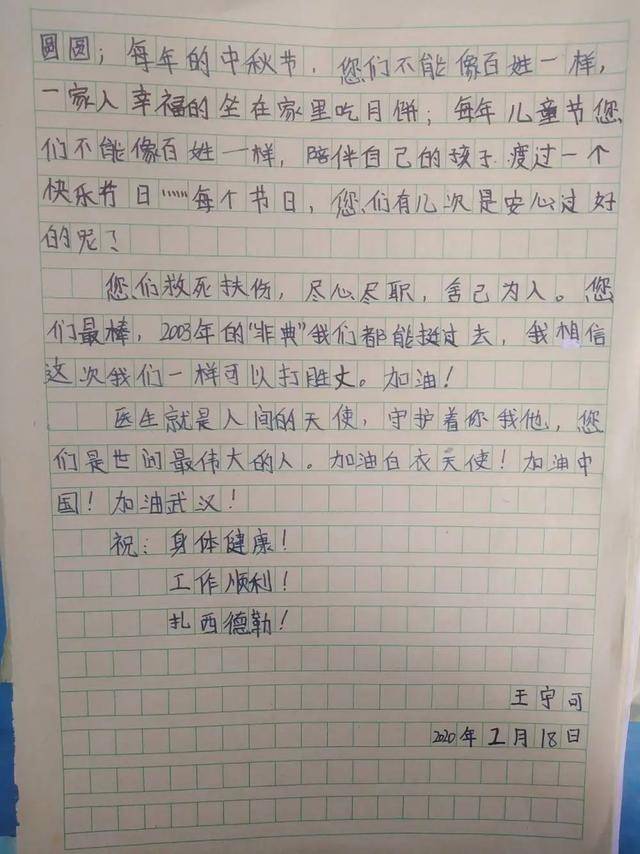 圆圆；每年的中秋节，您们不能像百姓一样，
一家人幸福的坐在家里吃月饼；每年儿童节您
们不能像百姓一样，陪伴自己的孩子度过一个
快乐节日……每个节日，您们有几次是安心过好
的呢？
您们救死扶伤，尽心尽职，舍己为人。您
们最棒，2003年的“非典”我们都能挺过去，我相信
这次我们一样可以打胜丈。加油！
医生就是人间的天使，守护着你我他，您
们是世间最伟大的人。加油白衣天使！加油中
国！加油武汉！
祝：身体健康！
工作顺利！
扎西德勒！
王宁可
2020年2月18日